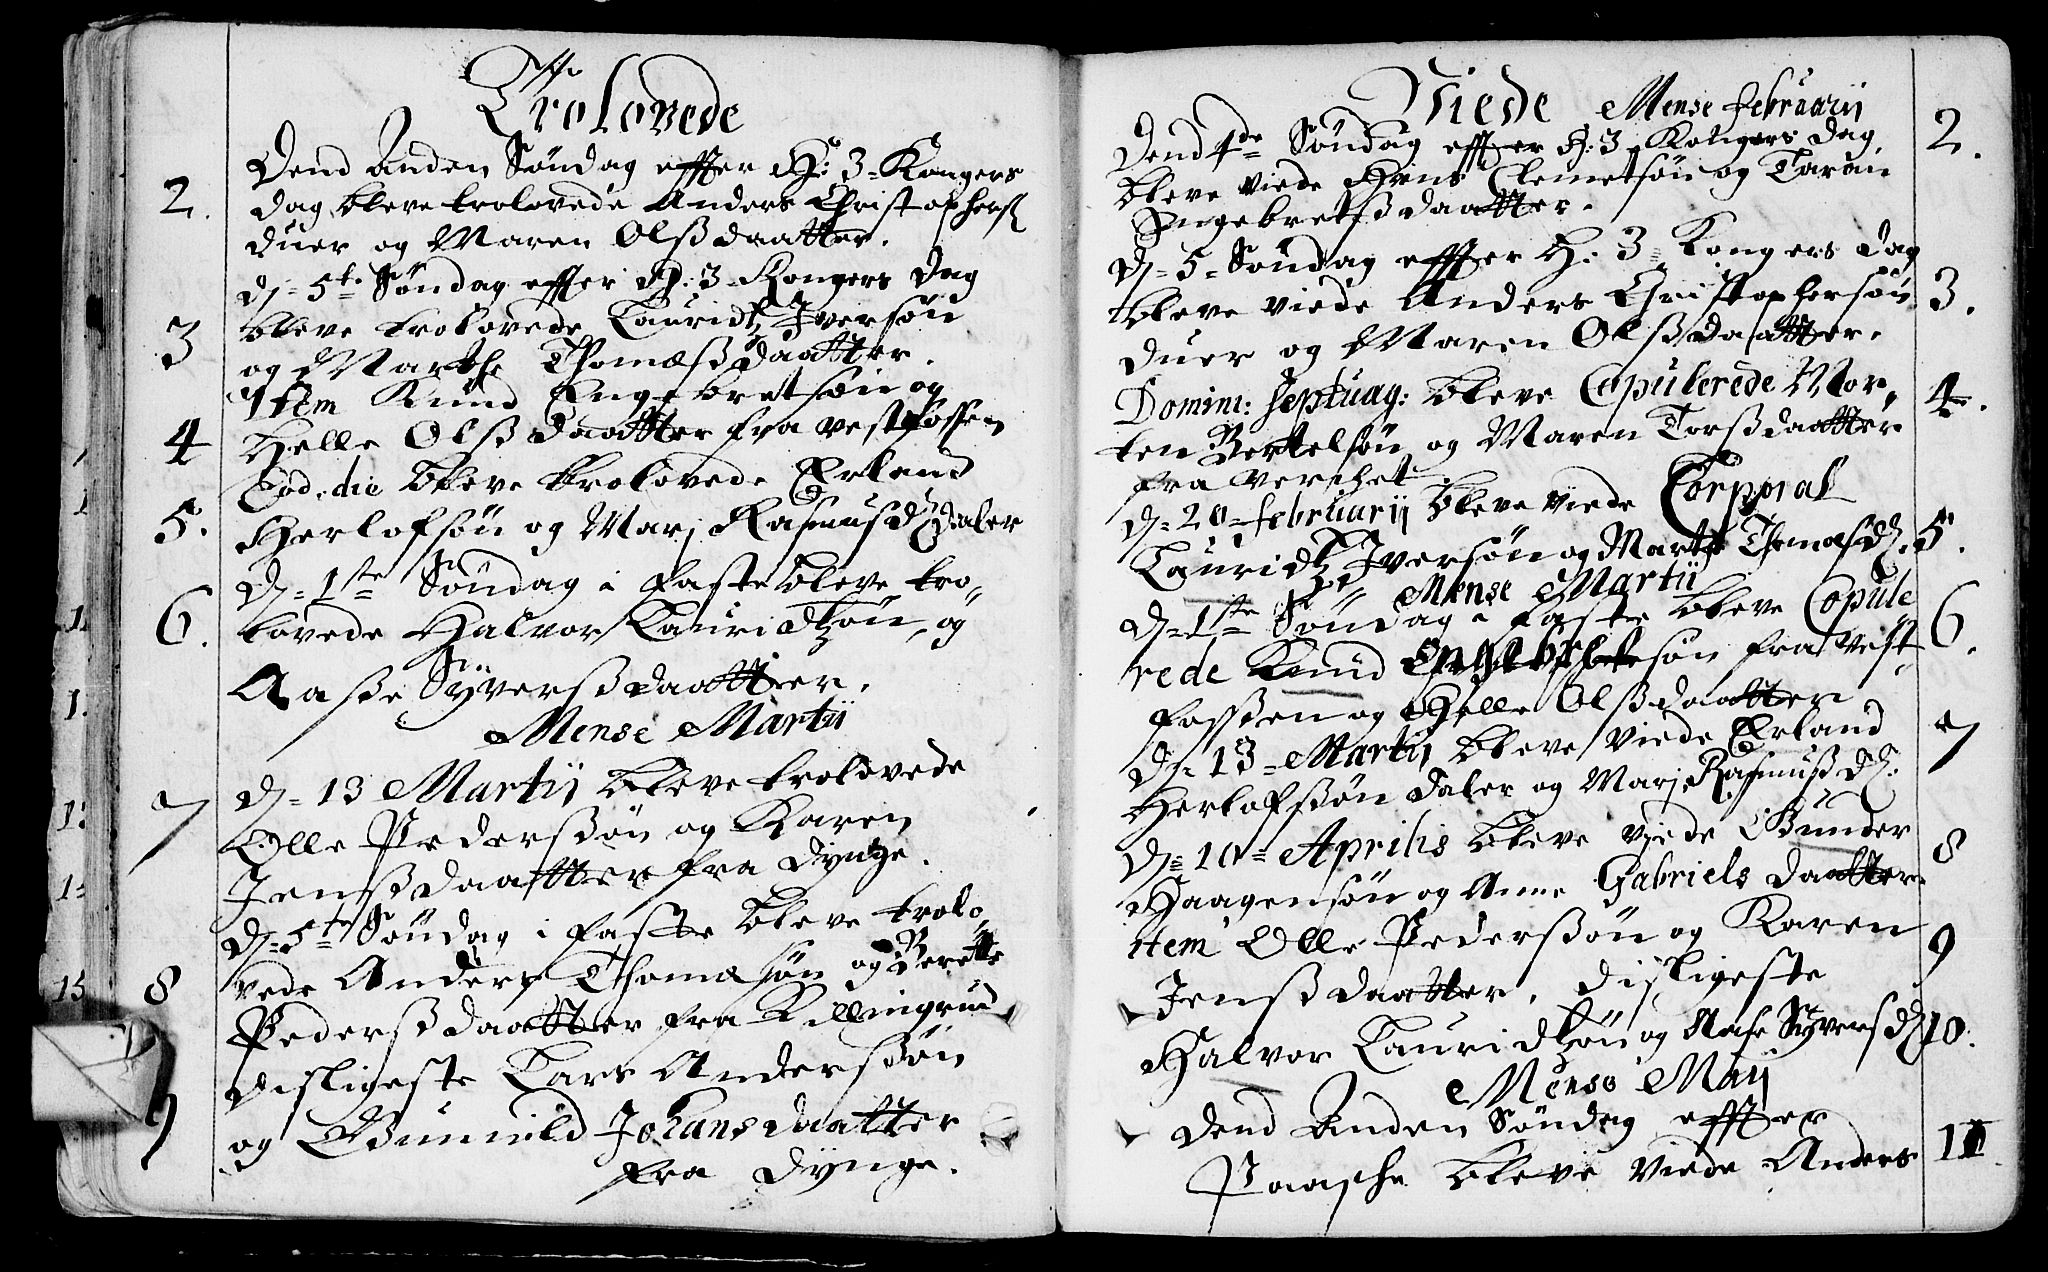 Trolovede
Dend Anden Søndag effter H: 3 = Kongers
2.
dag bleve trolovede Anders Christophers:
duer og Maren Olßdaatter.
D = 5te Søndag effter H: 3 Kongers dag
3
bleve trolovede Lauridtz Iversøn
og Marthe Thomæßdaatter.
Item Knud Engebretsøn og
4
Helle Olßdaatter fra vestfossen
Eod: die bleve trolovede Erland
5.
Herlofsøn og Marj Rasmusd: Daler
D = 1ste Søndag i faste bleve tro,,
6.
lovede Halvor Lauridtzøn, og
Aaße Syverßdaatter.
Mense Martii
D = 13 Martij bleve trolovede
7
Olle Pederßøn og Karen
Jenßdaatter fra Dynge.
D = 5te Søndag i faste bleve trolo,,
vede Anders Thomæsøn og Berette
8
Pederßdaatter fra Killingrud
disligeste Lars Anderssøn
9
og Gunnild Johansdaatter
fra Dynge.
Viede Mense februarij
Dend 4de Søndag effter H: 3 Kongers dag
2.
bleve viede Hans Clemetsøn og Taran
Ingebretßdaatter.
D = 5 = Søndag effter H: 3 = Kongers dag
bleve viede Anders Christophersøn
3.
duer og Maren Olßdaatter.
Domin: septuag: bleve Copulerede Mor,,
4.
ten Bertelsøn og Maren Torßdaatter
fra verchet.
D = 20 = februarij bleve viede Corporal
Lauridtz Iversøn og Marte Thomæsd:
5.
Mense Martii
D = 1ste Søndag i faste bleve Copule
rede Knud Engebretsøn fra vest,,
6.
foßen og Helle Olßdaatter
D = 13 = Martij bleve viede Erland
7
Herlofßøn Daler og Marj Rasmußd:
D = 10 = Aprilis bleve viede Gunder
8
Haagensøn og Anne Gabriels daatter.
item Olle Pederßøn og Karen
9
Jenßdaatter, disligeste
Halvor Lauridtzøn og Aase Syversd:
10.
Mense Maij
Dend Anden Søndag effter
Paasche bleve viede Anders
11